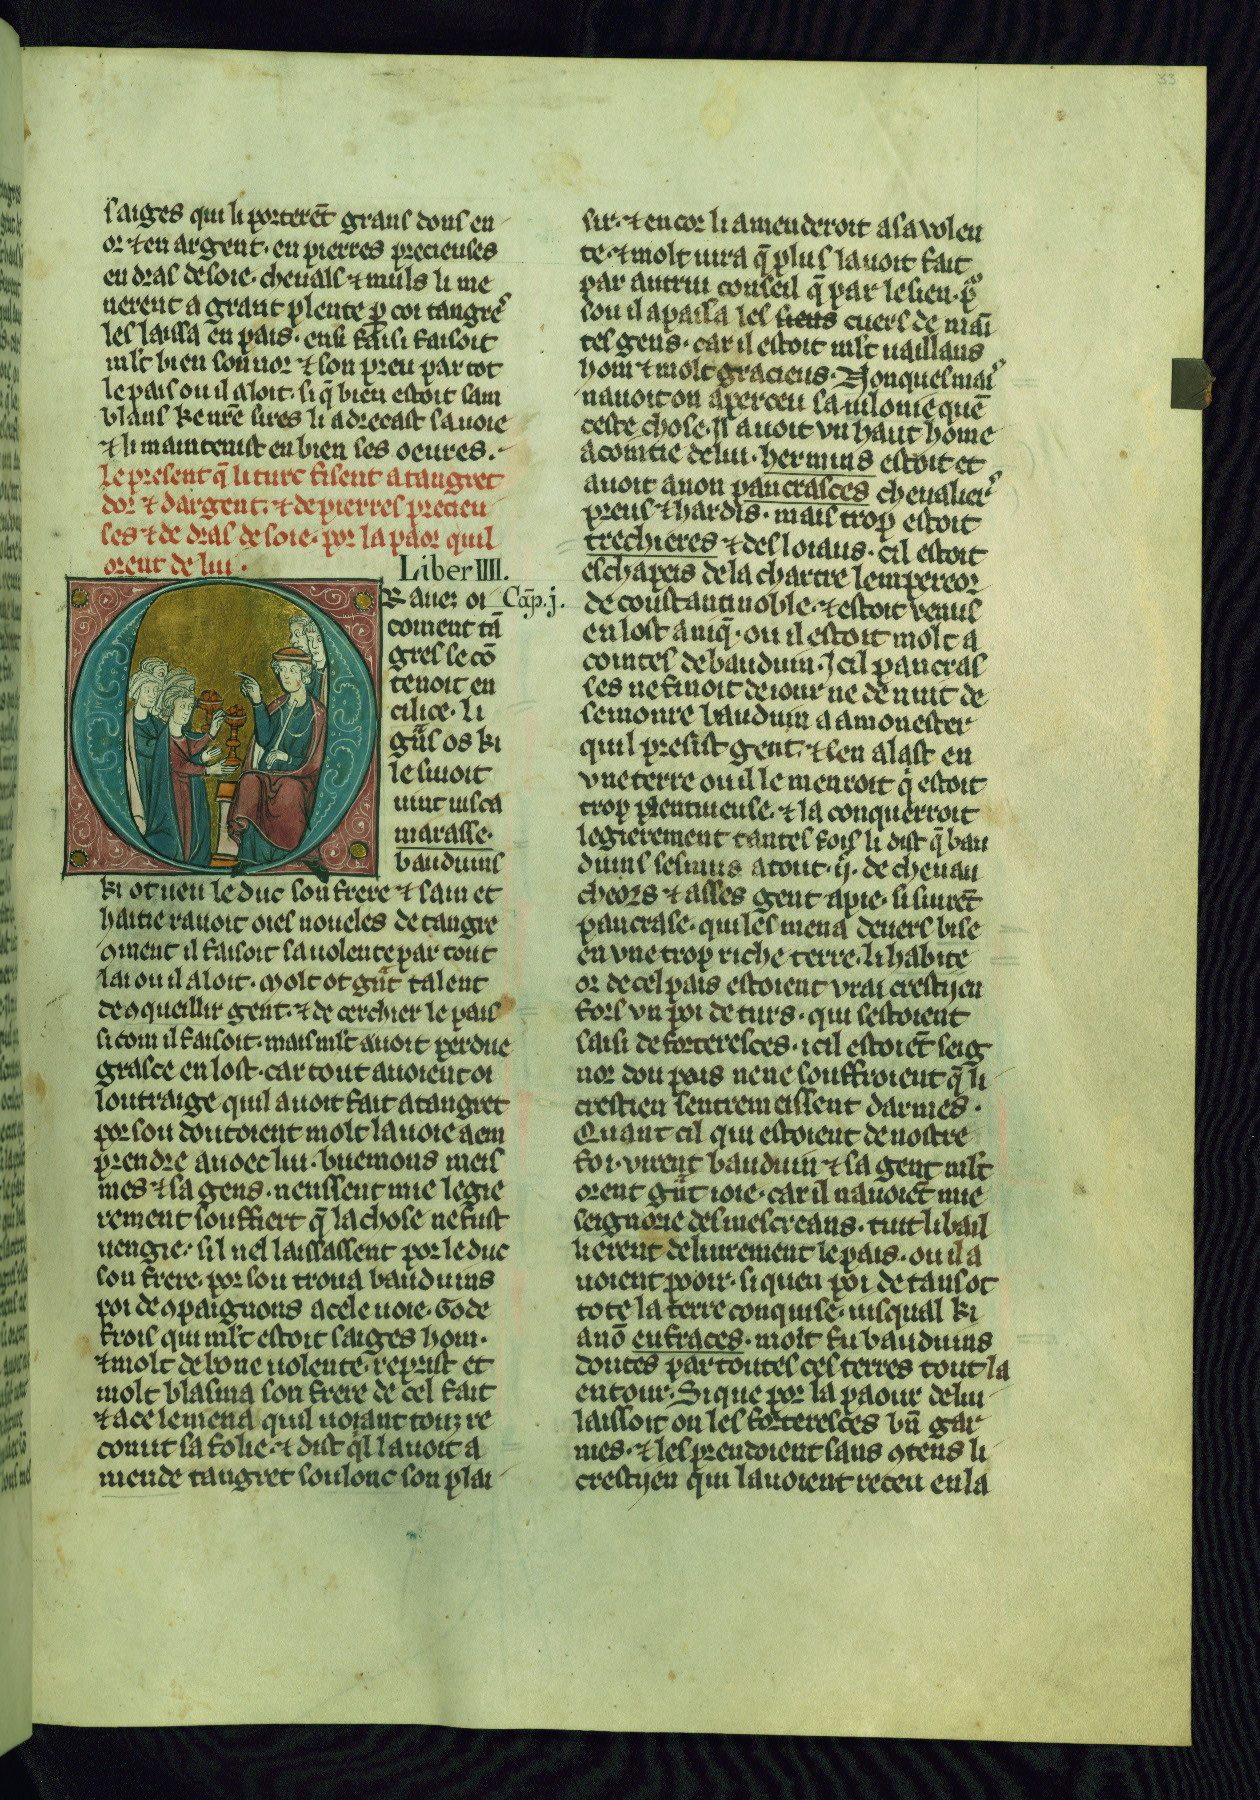 33
saiges qui li porterēt grans dons en
or ⁊ en argent· en pierres precieuses
en dras de soie· chevals ⁊ muls li me
nerent a grant plente p̲ coi tangre᷒
les laissa en pais· ensi faisi faisoit
ml̄t bien son nor ⁊ son preu par tot
le pais ou il aloit· si q̄ bien estoit sam
blans ke nr̄e sires li adrecast sa voie
⁊ li maintenist en bien ses oeures·
le present q̄ li turc fisent a tangret
dor ⁊ dargent· ⁊ de pierres precieu
ses ⁊ de dras de soie· por la paor quil
orent de lui·
Liber IIII.
O
R avez oi Cap. j.
coment tā
gres se cō
tenoit en
cilice· li
gn̄s os ki
le siuoit
vint iusca
marasse·
bauduins
ki ot veu le duc son frere ⁊ sain et
haitie ravoit oies noveles de tangre
ꝯment il faisoit sa volente par tout
lai ou il aloit· molt ot gn̄t talent
de ꝯqueillir gent· ⁊ de cerchier le pais
si com il faisoit· mais ml̄t avoit perdue
grasce en lost· car tout avoient oi
loutraige quil avoit fait a tangret
por sou doutoient molt la voie a em
prendre avoec lui· buemons meis
mes ⁊ sa gens· neussent mie legie
rement souffiert q̄ la chose ne fust
vengie· sil nel laissassent por le duc
son frere· por sou trova bauduins
poi de ꝯpaignons a cele voie· Gode
frois qui ml̄t estoit saiges hom·
⁊ molt de bone volente· reprist et
molt blasma son frere de cel fait
⁊ a ce le mena quil voiant touz re
conut sa folie· ⁊ dist ql̄ lavoit a
mende tangret soulonc son plai
sir· ⁊ encor li amenderoit a sa volen
te· ⁊ molt iura q̄ plus lavoit fait
par autrui conseil q̄ par le sien· p᷒
sou il apaissa les siens cuers de mai
tes gens· car il estoit ml̄t vaillans
hom ⁊ molt gracieus· Donques mais
navoit on aperceu sa vilonie quē
ceste chose· Il avoit vn haut home
acointie de lui· hermins estoit et
avoit a non pancrasces chevalier᷒
preus ⁊ hardis· mais trop estoit
trechieres ⁊ desloiaus· cil estoit
eschapeis de la chartre lempereor
de constantinoble· ⁊ estoit venus
en lost a niq̄· ou il estoit molt a
cointes de bauduin· Icil pancras
ses ne finoit de iour ne de nuit de
semonre bauduin a amonester
quil presist gent· ⁊ sen alast en
vne terre ou il le menroit q̄ estoit
trop plentiueuse· ⁊ la conquerroit
legierement tantes fois li dist q̄ bau
duins sesmus atout ·ij· de chevau
cheors ⁊ asses gent a pie· si siuret̄
pancrase· qui les mena devers bise
en vne trop riche terre· li habite
or de cel pais estoient vrai crestijen
fors vn poi de turs· qui sestoient
saisi de forteresces· icil estoiēt seig
nor dou pais ne ne souffroient q̄ li
crestien sentremeissent darmes·
Quant cil qui estoient de nostre
foi· virent bauduin ⁊ sa gent ml̄t
orent gn̄t ioie· car il navoiēt mie
seignorie des mescreans· tuit li bail
lierent delivrement le pais· ou il a
voient pooir· si quen poi de tans ot
tote la terre conquise· iusqual ki
a nō eufraces· molt fu bauduins
doutes par toutes ces terres tout la
entour· Si que por la paour de lui
laissoit on les forteresces bn̄ gar
nies· ⁊ les prendoient sans ꝯtens li
crestijen qui lavoient receu en la